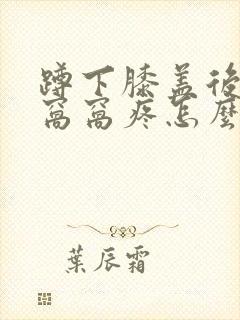 蹲下膝盖後
窩窩疼怎麼
葉辰霜